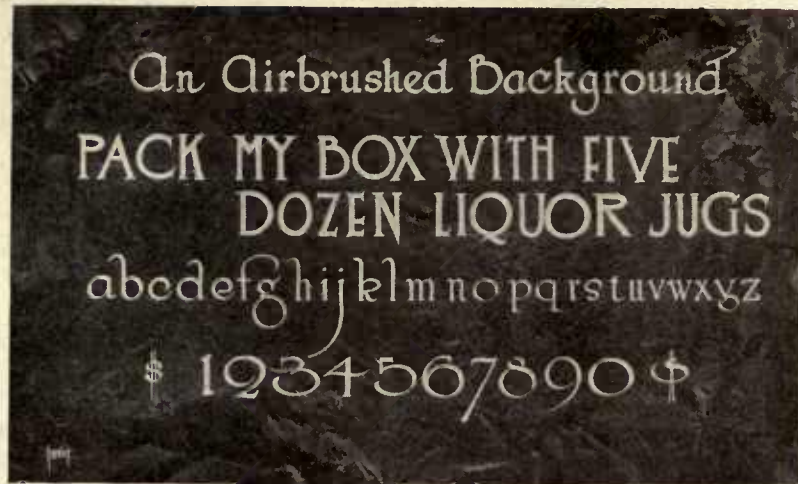 An Airbrushed Background
PACK MY BOX WITH FIVE
DOZEN LIQUOR JUGS
abcdefghijklmnopqrstuvwxyz
$ 1234567890 $